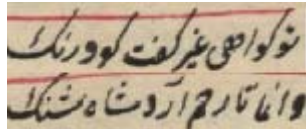 تو کواهی غیر کفت کو و رنک
وا نما تا رحم آرد شاه شنک